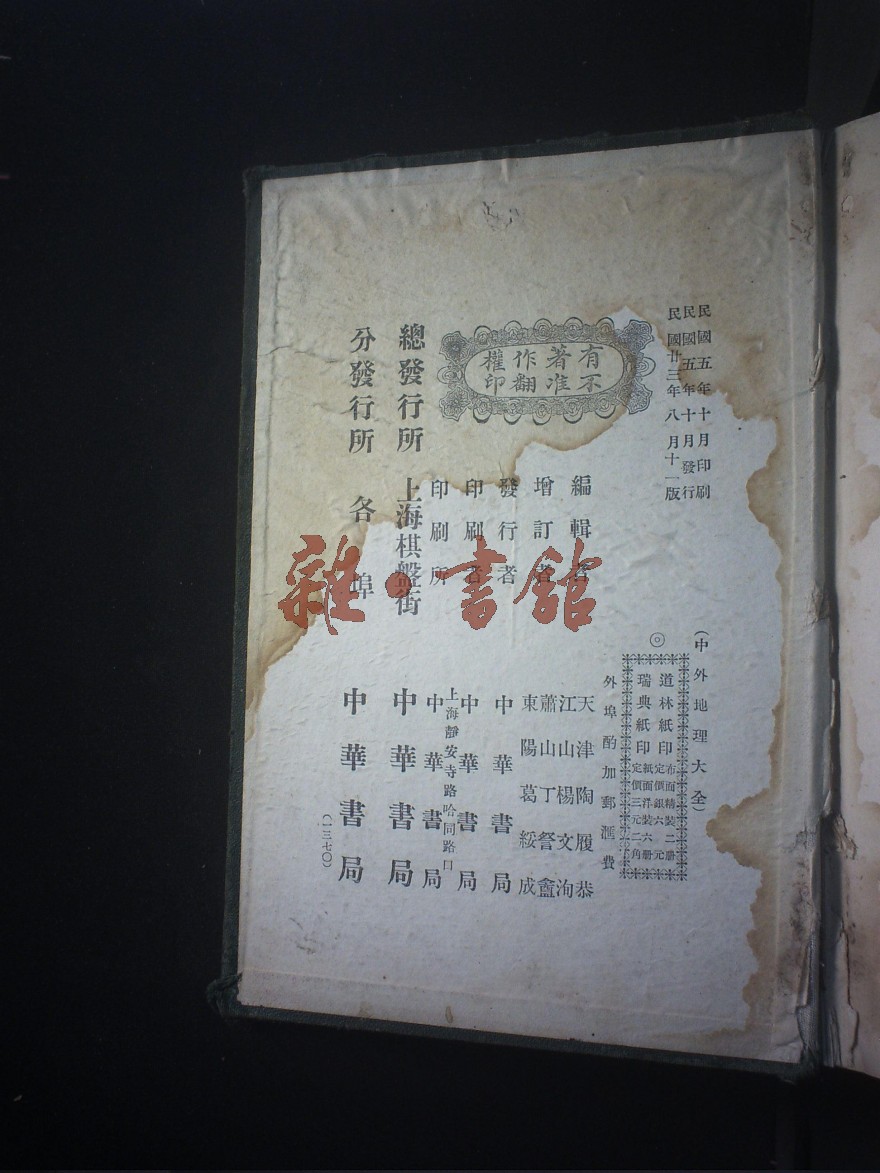 民國五年十月印刷
民國五年十月發行
民國廿三年八月十一版
有著作權
不准翻印
(中外地理大全)
◎
道林紙印 布面精裝二册 定價銀六元
瑞典紙印 紙面洋裝六册 定價三元二角
外埠酌加郵滙費
編輯者 天津陶履恭
江山楊文洵
增訂者 蕭山丁詧盦
東陽葛綏成
發行者 中華書局
印刷者 中華書局
上海靜安寺路哈同路口
印刷所 中華書局
總發行所 上海棋盤街 中華書局
分發行所 各埠 中華書局
(一三七〇)
雜·書館